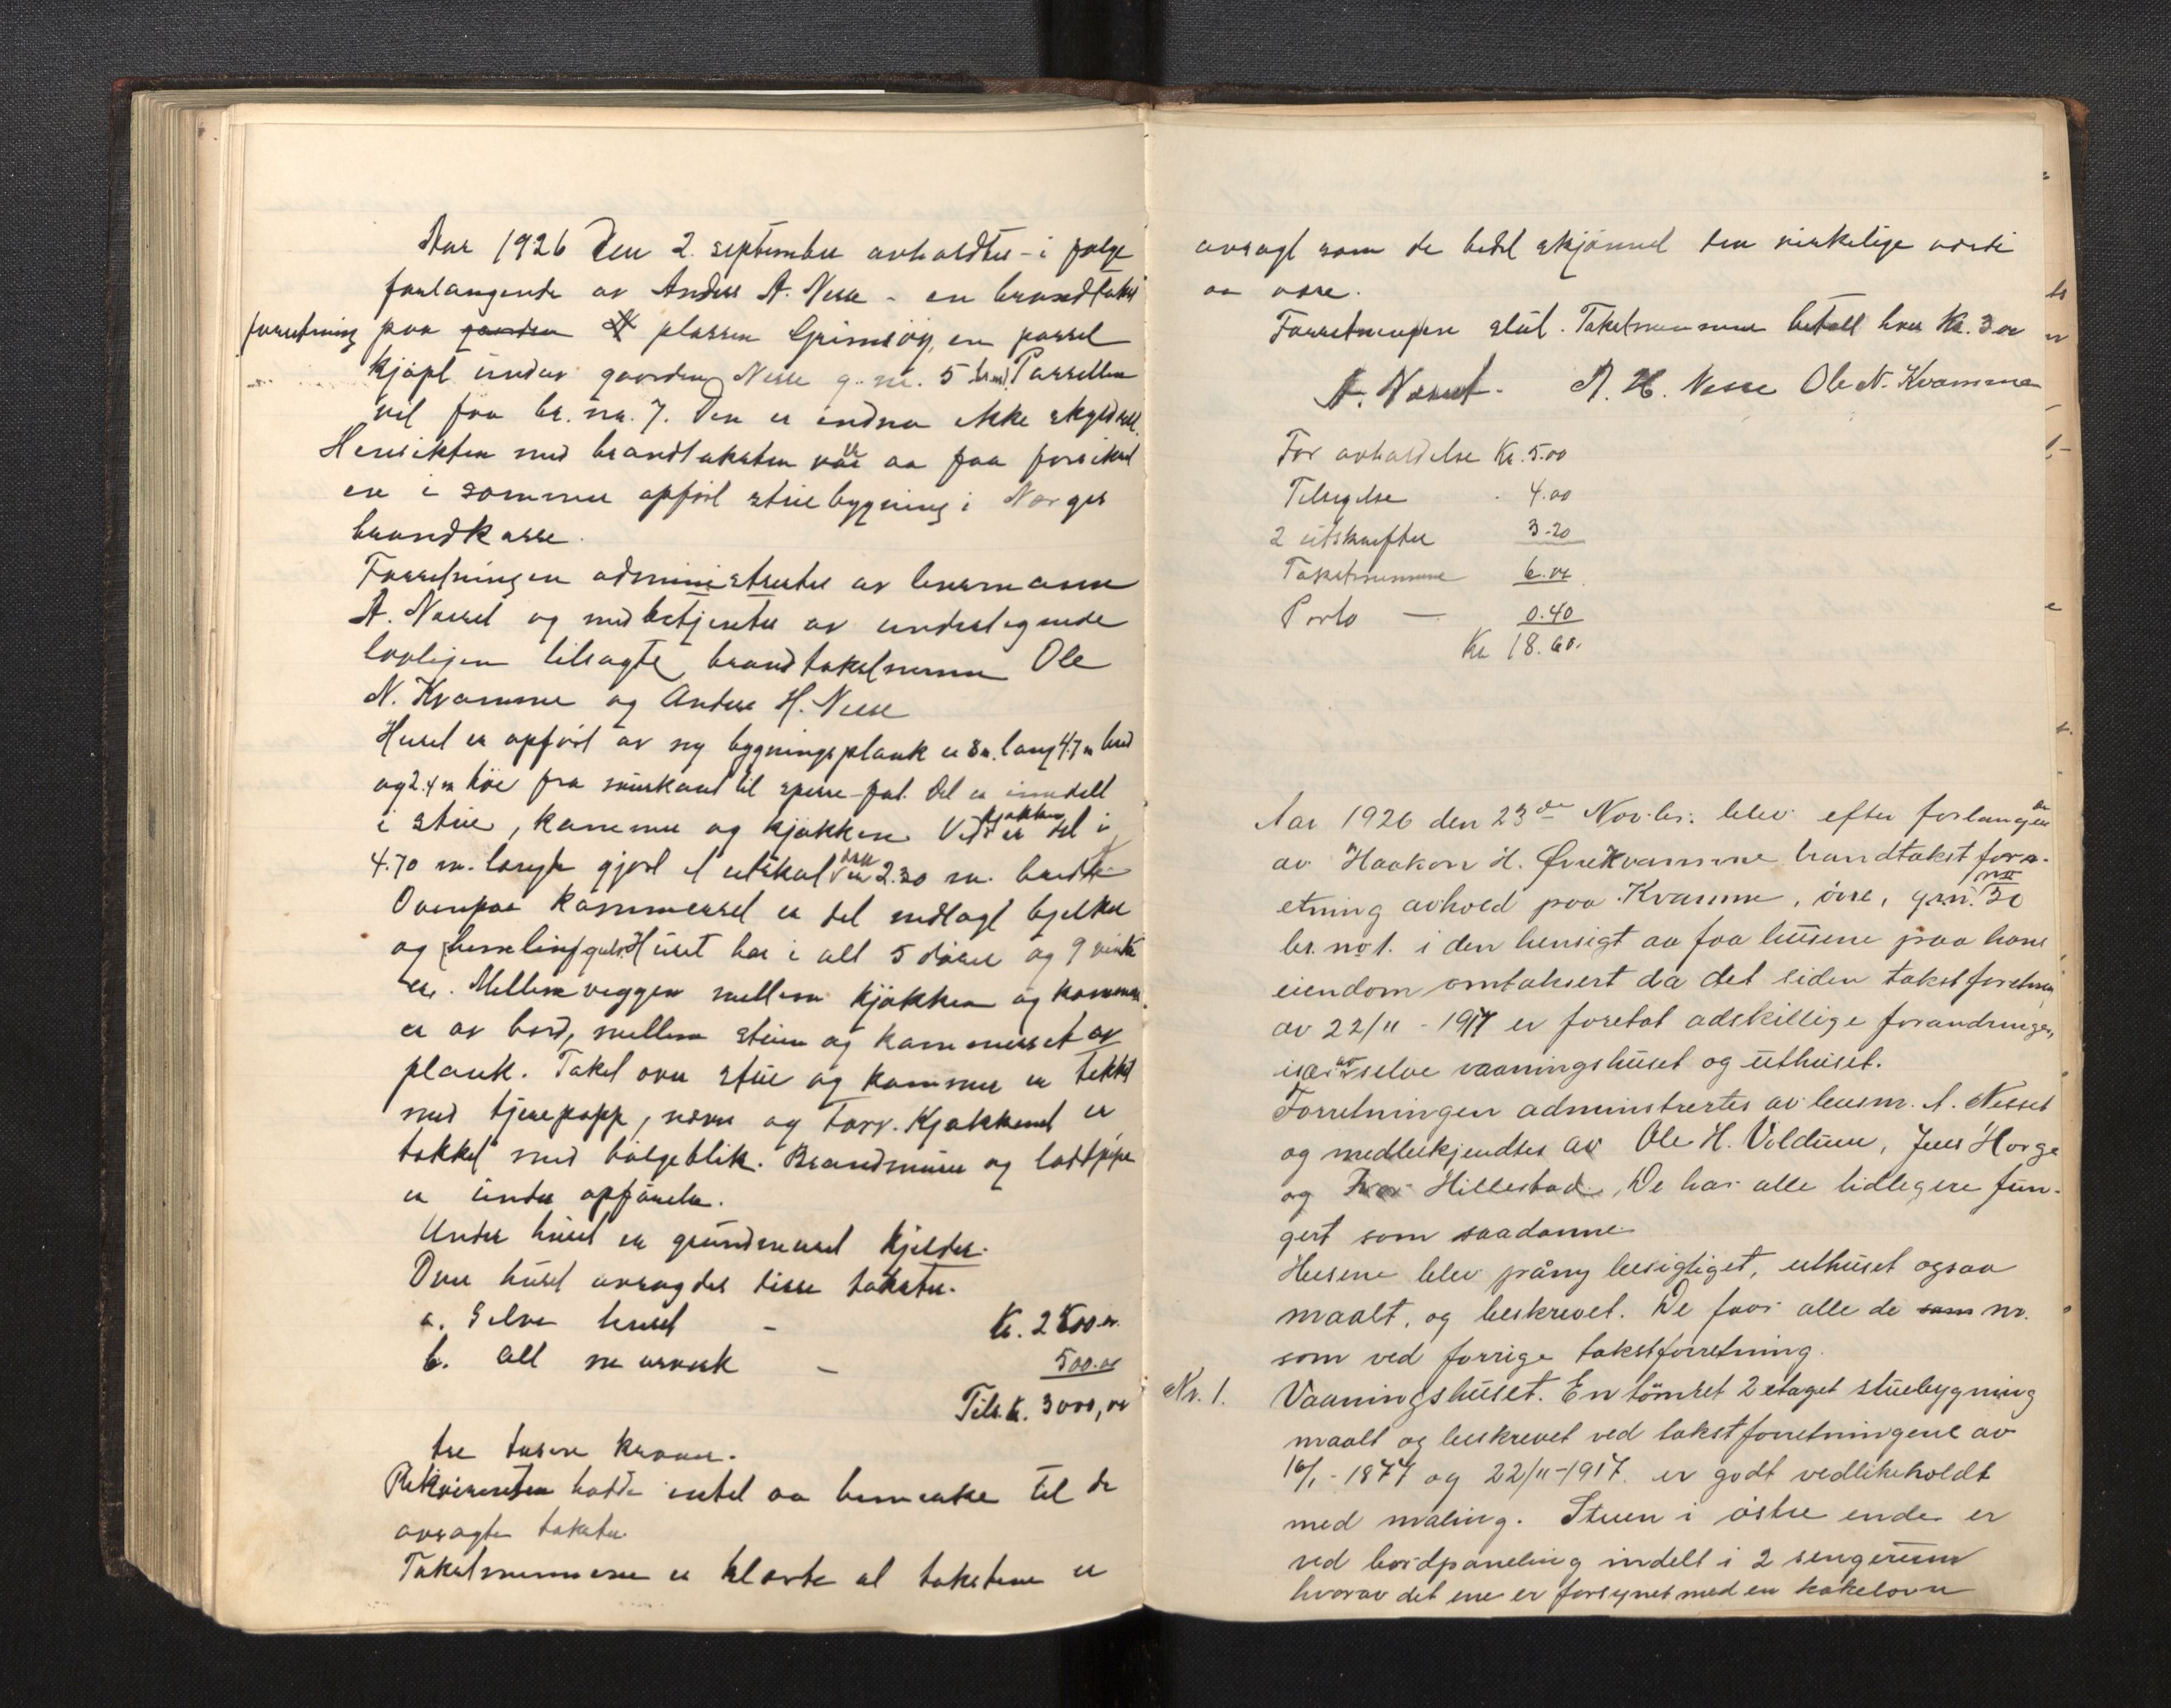 Aar 1926 den 2. september avholdtes - i følge
forlangende av Anders A. Nesse - en brandtakst
forretning paa garden plassen Grimsöy, en parsel
kjøpt under gaarden Nesse g. nr. 5 Parsellen
vil faa br. nr. 7. Den er endnu ikke skyldsatt.
Hensikten med brandtaksten var aa faa forsikret
en i sommer opført stuebygning i Norges
brandkasse.
Forretningen administrertes av lensmann
A. Nesset og medbetjentes av undertegnede
lovligen tilsagte brandtakstmenn Ole
N. Kvamme og Anders H. Nesse
Huset er opført av ny bygningsplank er 8 m. lang 4.7 m bred
og 2.4 m høi fra murkant til sperre-fot. Det er inndelt
i stue, kammer og kjøkken. Ved kjøkken er det i
4.70 m. lengde gjort et utskot 2.30 m. bredde
Ovenpaa kammerset er det nedlagt bjelker
og hemlingsgulv. Huset har i alt 5 dører og 9 vindu
er. Mellemveggen mellem kjøkken og kammer
er av bord, mellem stuen og kammerset av
plank. Taket over stue og kammer er tekket
med tjærepapp, næver og torv. Kjøkkenet er
tekket med bølgeblik. Brandmuren og loddpipe
er under opførelse.
Under huset er grundmuret kjelder.
Over huset avsagdes disse takster.
a. Selve huset - Kr. 2500.00
b. All murverk - 500.00
Tils. Kr. 3000,00
tre tusen kroner.
Rekvirenten hadde intet aa bemerke til de
avsagte takster.
Takstmennene erklærte at takstene er
avsagt som de bedst skjønnet den virkelige værdi
aa være.
Forretningen slut. Takstmennene betalt hver Kr. 3.00
A. Nesset. A. H. Nesse Ole N. Kvamme
For avholdelse Kr. 5.00
Tilsigelse - 4.00
2 utskrifter 3.20
Takstmennene 6.00
Porto — 0.40
Kr 18.60.
Aar 1926 den 23de Novbr. blev efter forlangende
av Haakon H. Øvre Kvamme brandtakst forr-
etning avhold paa Kvamme, øvre, grn. no 30
br. no 1. i den hensigt aa faa husene paa hans
eiendom omtaksert da det siden takstforetning
av 22/11 - 1917 er foretat adskillige forandringer,
især av selve vaaningshuset og uthuset.
Forretningen adminstrertes av lensm. A. Nesset
og medbekjendtes av Ole H. Voldum, Jens Horge
og Hillestad. De har alle tidligere fun-
gert som saadanne.
Husene blev påny besigtiget, uthuset ogsaa
maalt, og beskrevet. De faar alle de som nr.
som ved forrige takstforretning.
Nr. 1. Vaaningshuset. En tømret 2 etages stuebygning
maalt og beskrevet ved takstforretningene av
16/1 - 1877 og 22/11-1917. er godt vedlikeholdt
med maling. Stuen i østre ende er
ved bordpaneling indelt i 2 sengerum
hvorav det ene er forsynet med en kakelovn